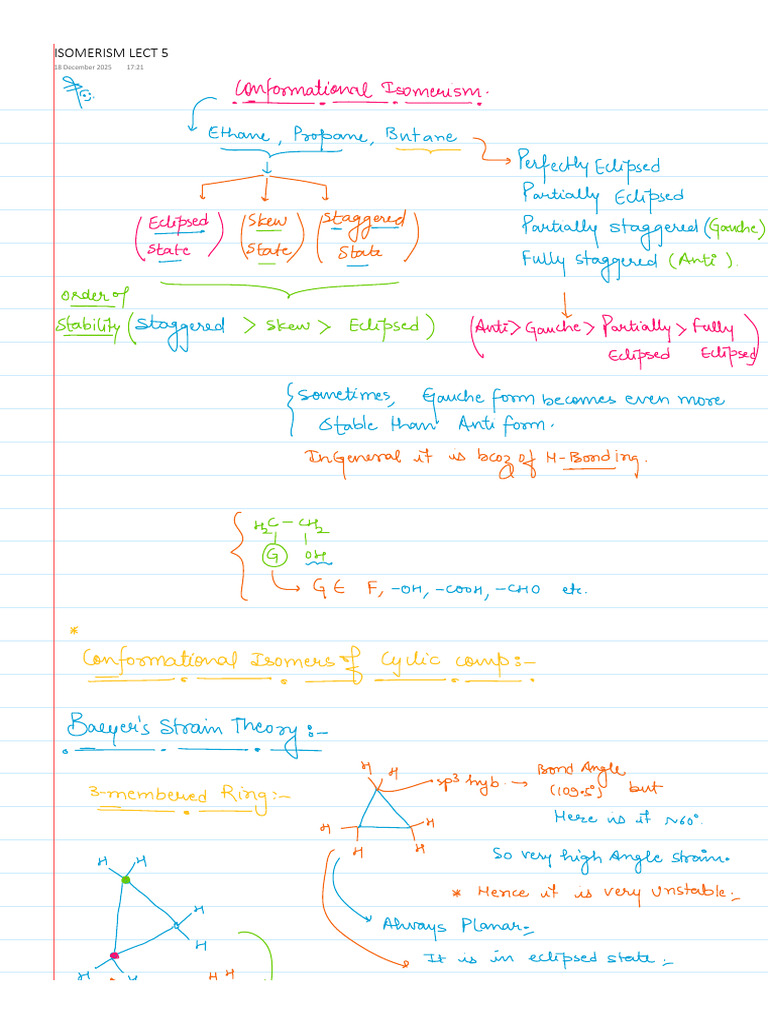 ISOMERISM LECT 5
18 December 2025 17:21
Conformational Isomerism.
Ethane, Propane, Butane
Perfectly Eclipsed
Partially Eclipsed
Partially staggered (Gauche)
Fully staggered (Anti).
(Eclipsed State) (Skew State) (Staggered State)
order of
Stability (Staggered > Skew > Eclipsed)
(Anti > Gauche > Partially Eclipsed > Fully Eclipsed)
Sometimes, Gauche form becomes even more
Stable than Anti form.
In General it is bcoz of H-Bonding.
H2C - CH2
G OH
G ∈ F, -OH, -COOH, -CHO etc.
*
Conformational Isomers of Cyclic comp:-
Baeyer's Strain Theory:-
3-membered Ring:-
H H
sp3 hyb. → Bond Angle
(109.5°) but
Here is it ~60°.
H H
H H
So very high Angle strain.
* Hence it is very Unstable:-
Always Planar:-
It is in eclipsed state:-
H H
H
H
H H H